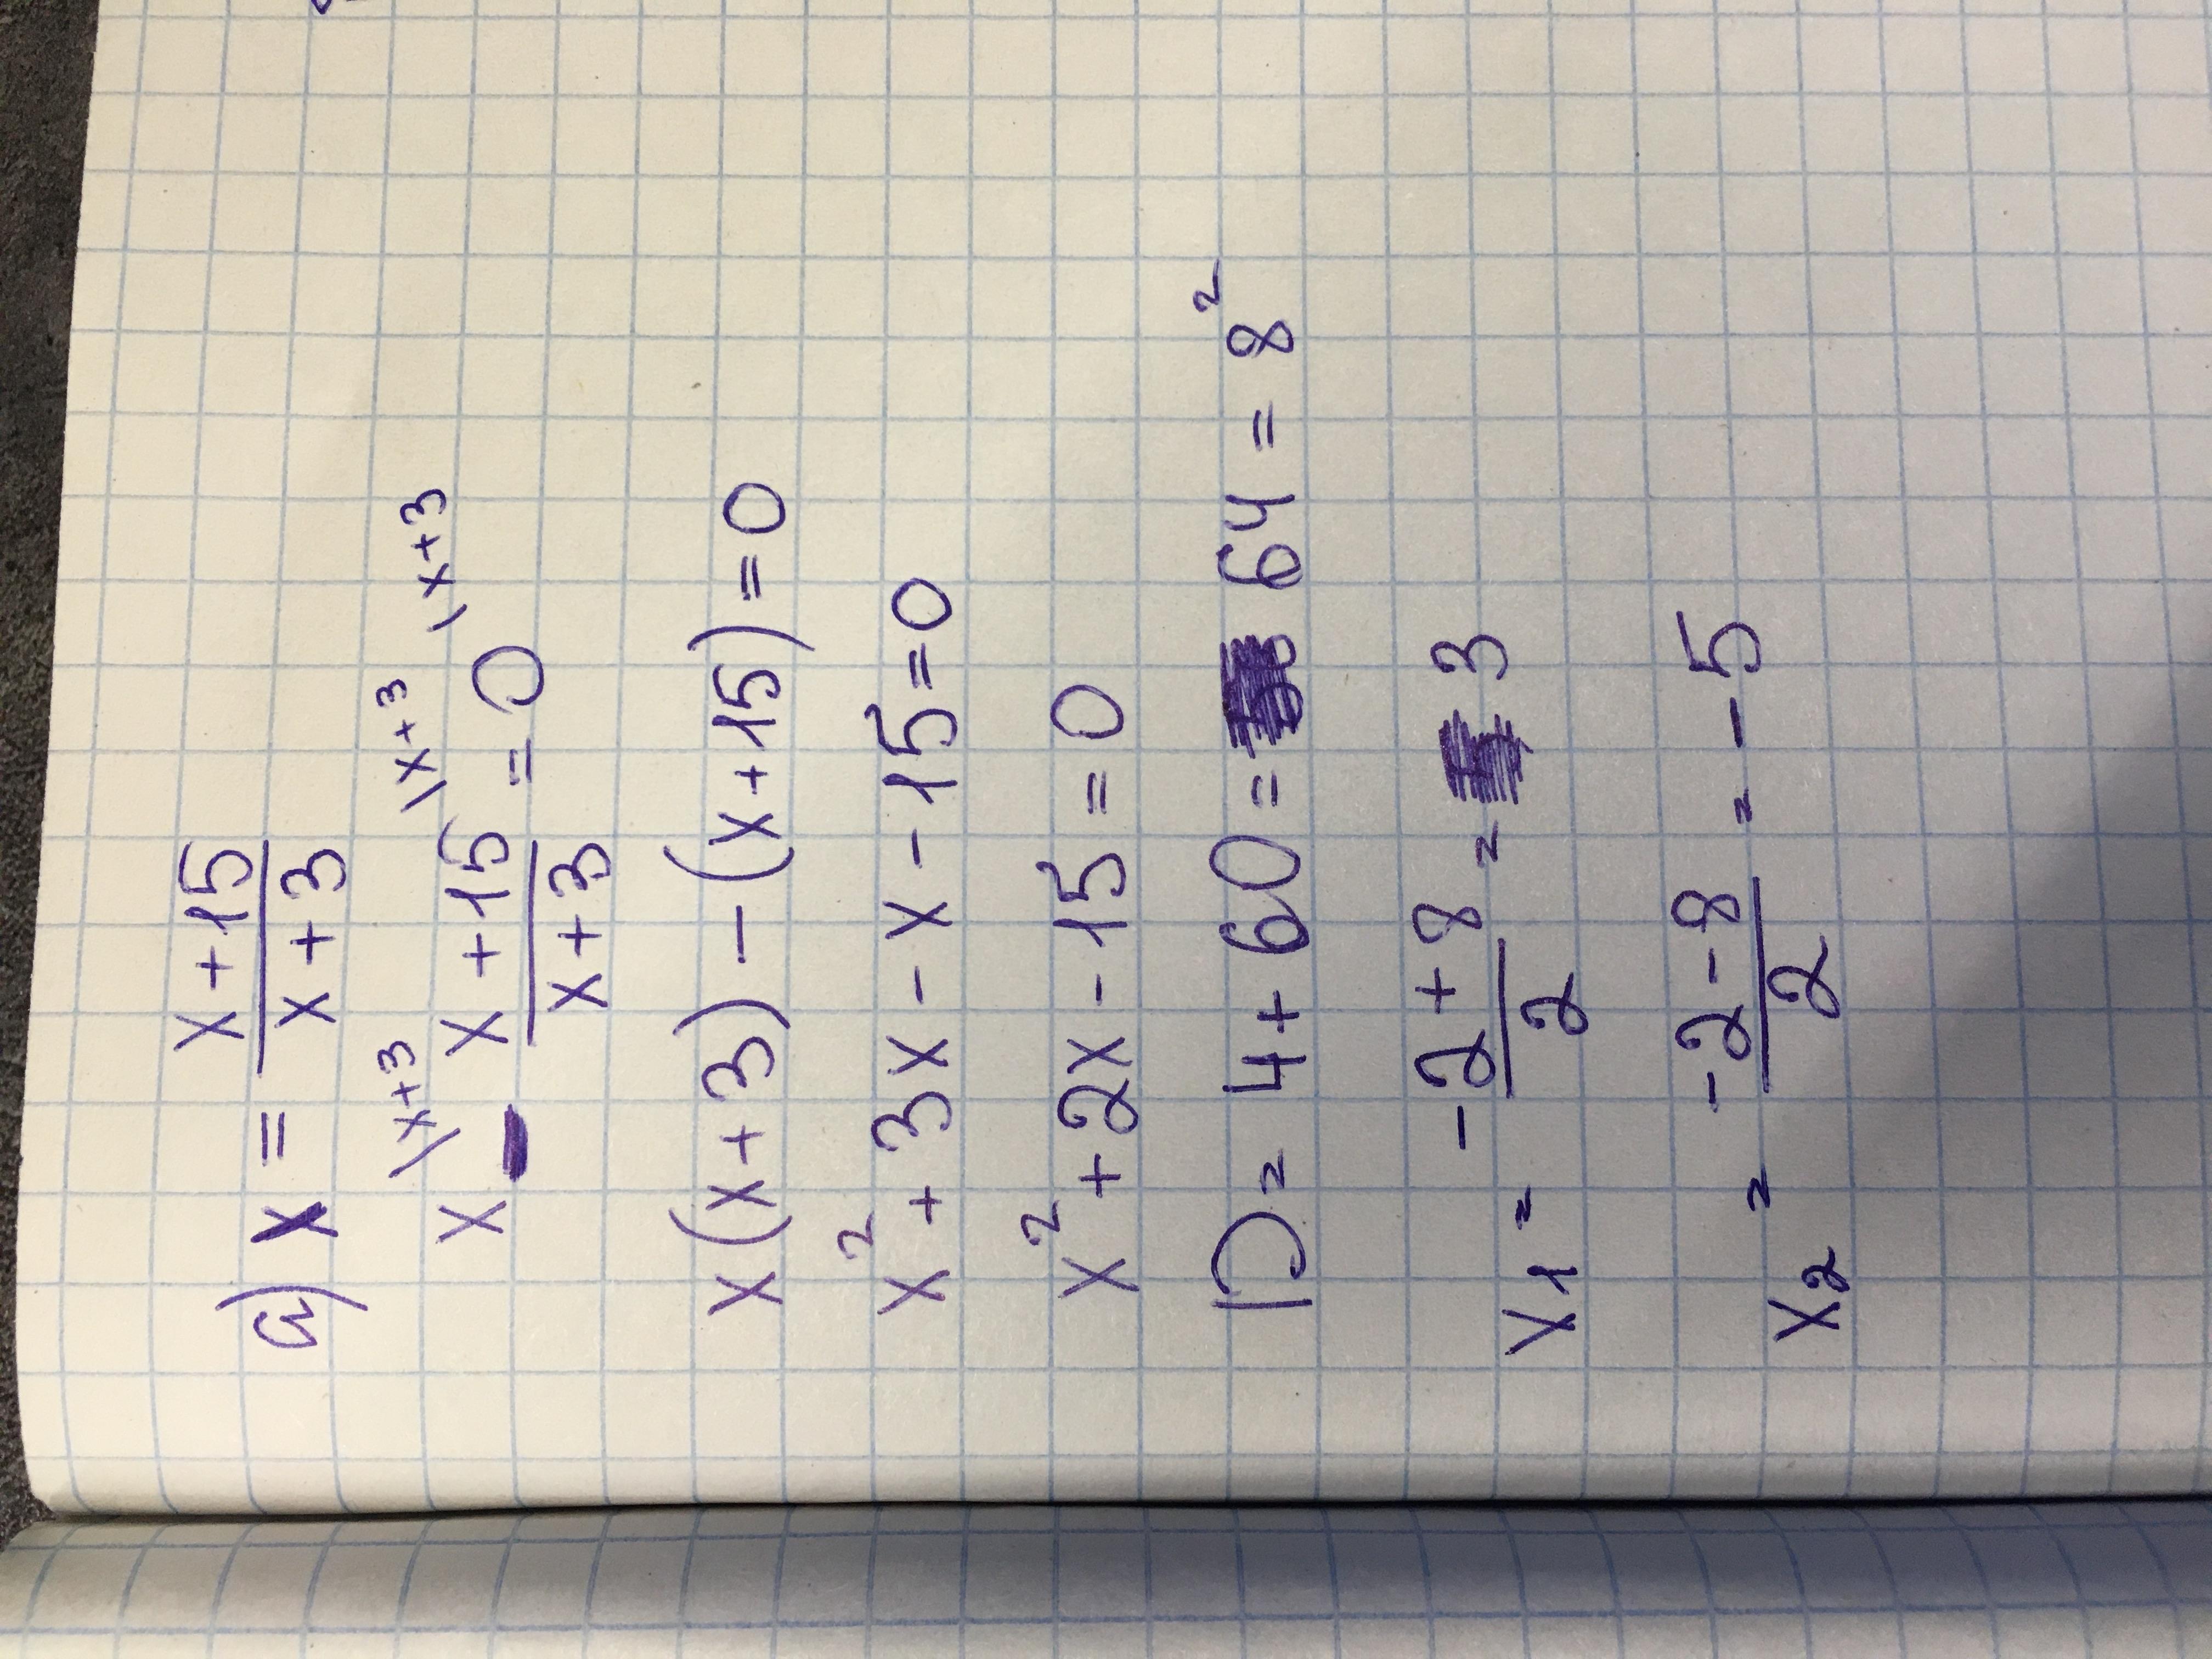 a) x = (x+15)/(x+3)
x \x+3 - (x+15)/(x+3) \x+3 = 0 \x+3
x(x+3) - (x+15) = 0
x² + 3x - x - 15 = 0
x² + 2x - 15 = 0
D = 4 + 60 = 64 = 8²
x₁ = (-2+8)/2 = 3
x₂ = (-2-8)/2 = -5